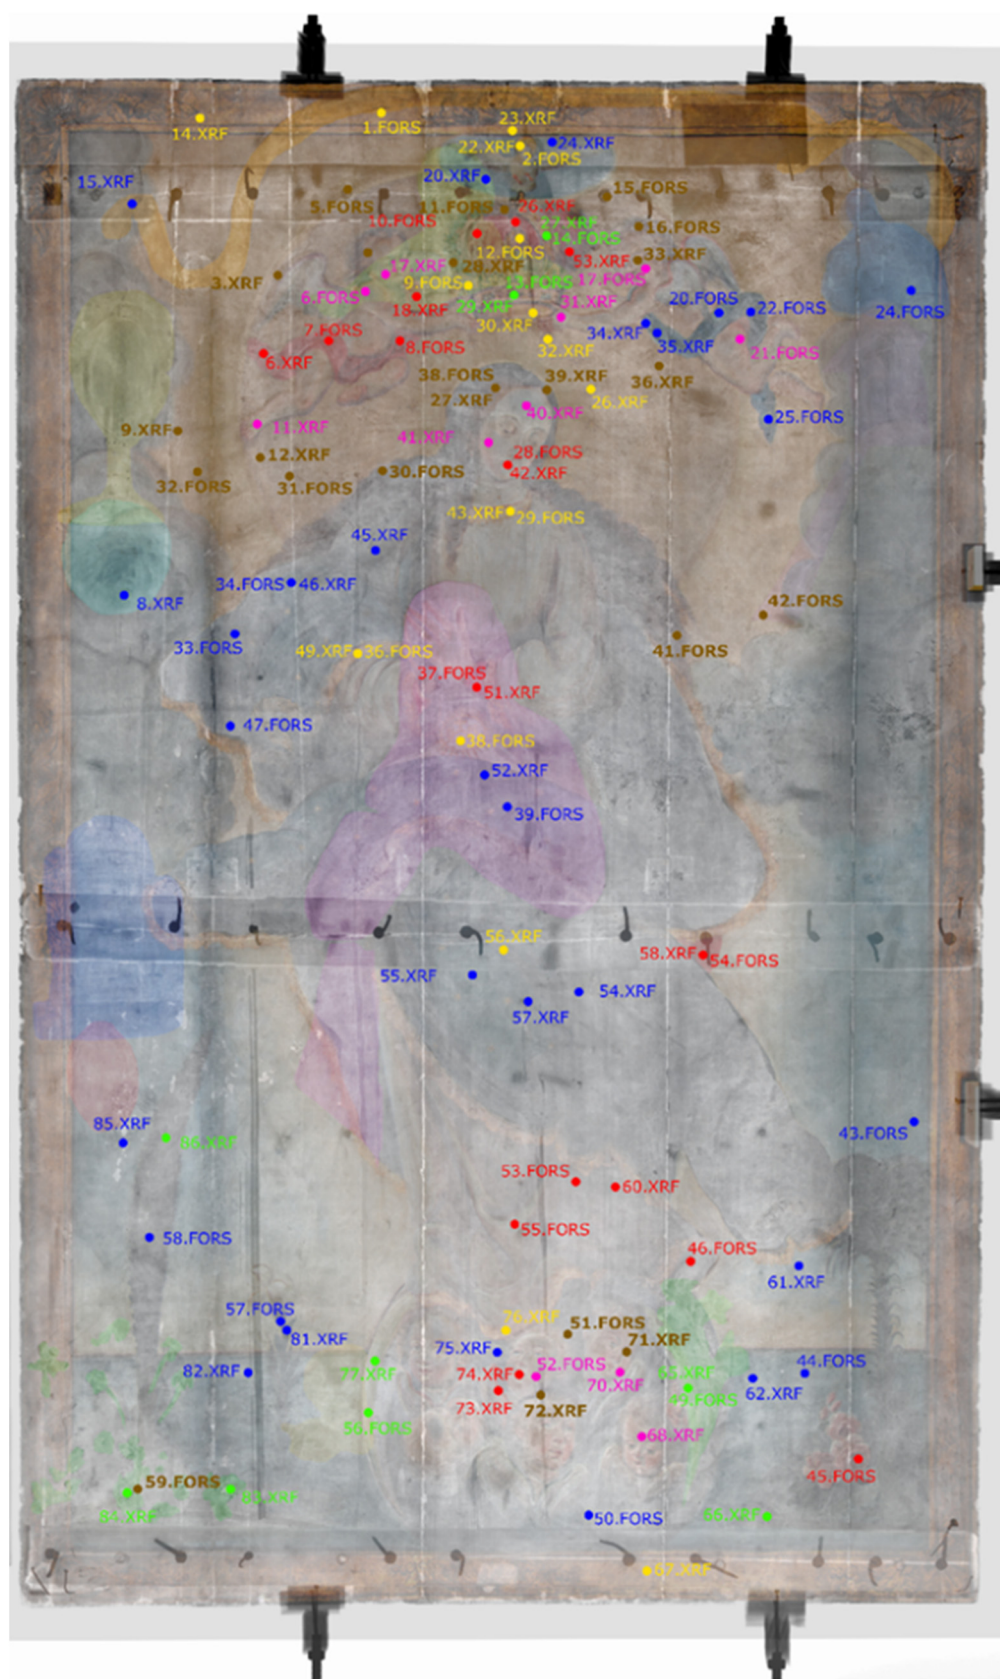 23.XRF
1.FORS
14.XRF
24.XRF
22.XRF
2.FORS
20.XRF
15.XRF
15.FORS
5.FORS
11.FORS
26.XRF
10.FORS
16.FORS
14.FORS
12.FORS
33.XRF
53.XRF
17.XRF
28.XRF
17.FORS
3.XRF
9.FORS
13.FORS
6.FORS
20.FORS
31.XRF
22.FORS
18.XRF
29.XRF
24.FORS
30.XRF
7.FORS
34.XRF
8.FORS
35.XRF
32.XRF
21.FORS
6.XRF
38.FORS
39.XRF
36.XRF
27.XRF
26.XRF
40.XRF
25.FORS
11.XRF
9.XRF
41.XRF
28.FORS
12.XRF
30.FORS
42.XRF
32.FORS
31.FORS
43.XRF
29.FORS
45.XRF
34.FORS
46.XRF
8.XRF
42.FORS
33.FORS
49.XRF
36.FORS
41.FORS
37.FORS
51.XRF
47.FORS
38.FORS
52.XRF
39.FORS
56.XRF
58.XRF
54.FORS
55.XRF
54.XRF
57.XRF
85.XRF
43.FORS
86.XRF
53.FORS
60.XRF
55.FORS
58.FORS
46.FORS
61.XRF
57.FORS
76.XRF
51.FORS
81.XRF
71.XRF
75.XRF
44.FORS
52.FORS
77.XRF
82.XRF
74.XRF
65.XRF
70.XRF
62.XRF
49.FORS
73.XRF
72.XRF
56.FORS
68.XRF
45.FORS
59.FORS
83.XRF
84.XRF
50.FORS
66.XRF
67.XRF